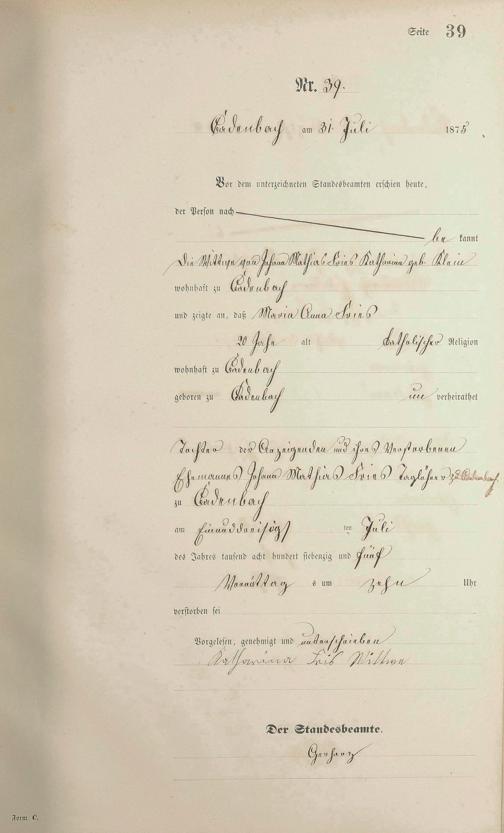 Seite 39
Nr. 39.
Cadenbach am 31 Juli 1875
Vor dem unterzeichneten Standesbeamten erschien heute,
der Person nach
be kannt
die Wittwe von Johann Mathias Fries Katharina geb. Klein
wohnhaft zu Cadenbach
und zeigte an, daß Maria Anna Fries
20 Jahr alt katholischer Religion
wohnhaft zu Cadenbach
geboren zu Cadenbach un verheirathet
Tochter der Anzeigenden und ihres Verstorbenen
Ehemannes Johann Mathias Fries Taglöhner zu Cadenbach
zu Cadenbach
am Einunddreisigst ten Juli
des Jahres tausend acht hundert siebenzig und fünf
Vormittag s um zehn Uhr
verstorben sei
Vorgelesen, genehmigt und unterschrieben
Katharina Fris Wittwe
Der Standesbeamte.
Gerharz
Form C.